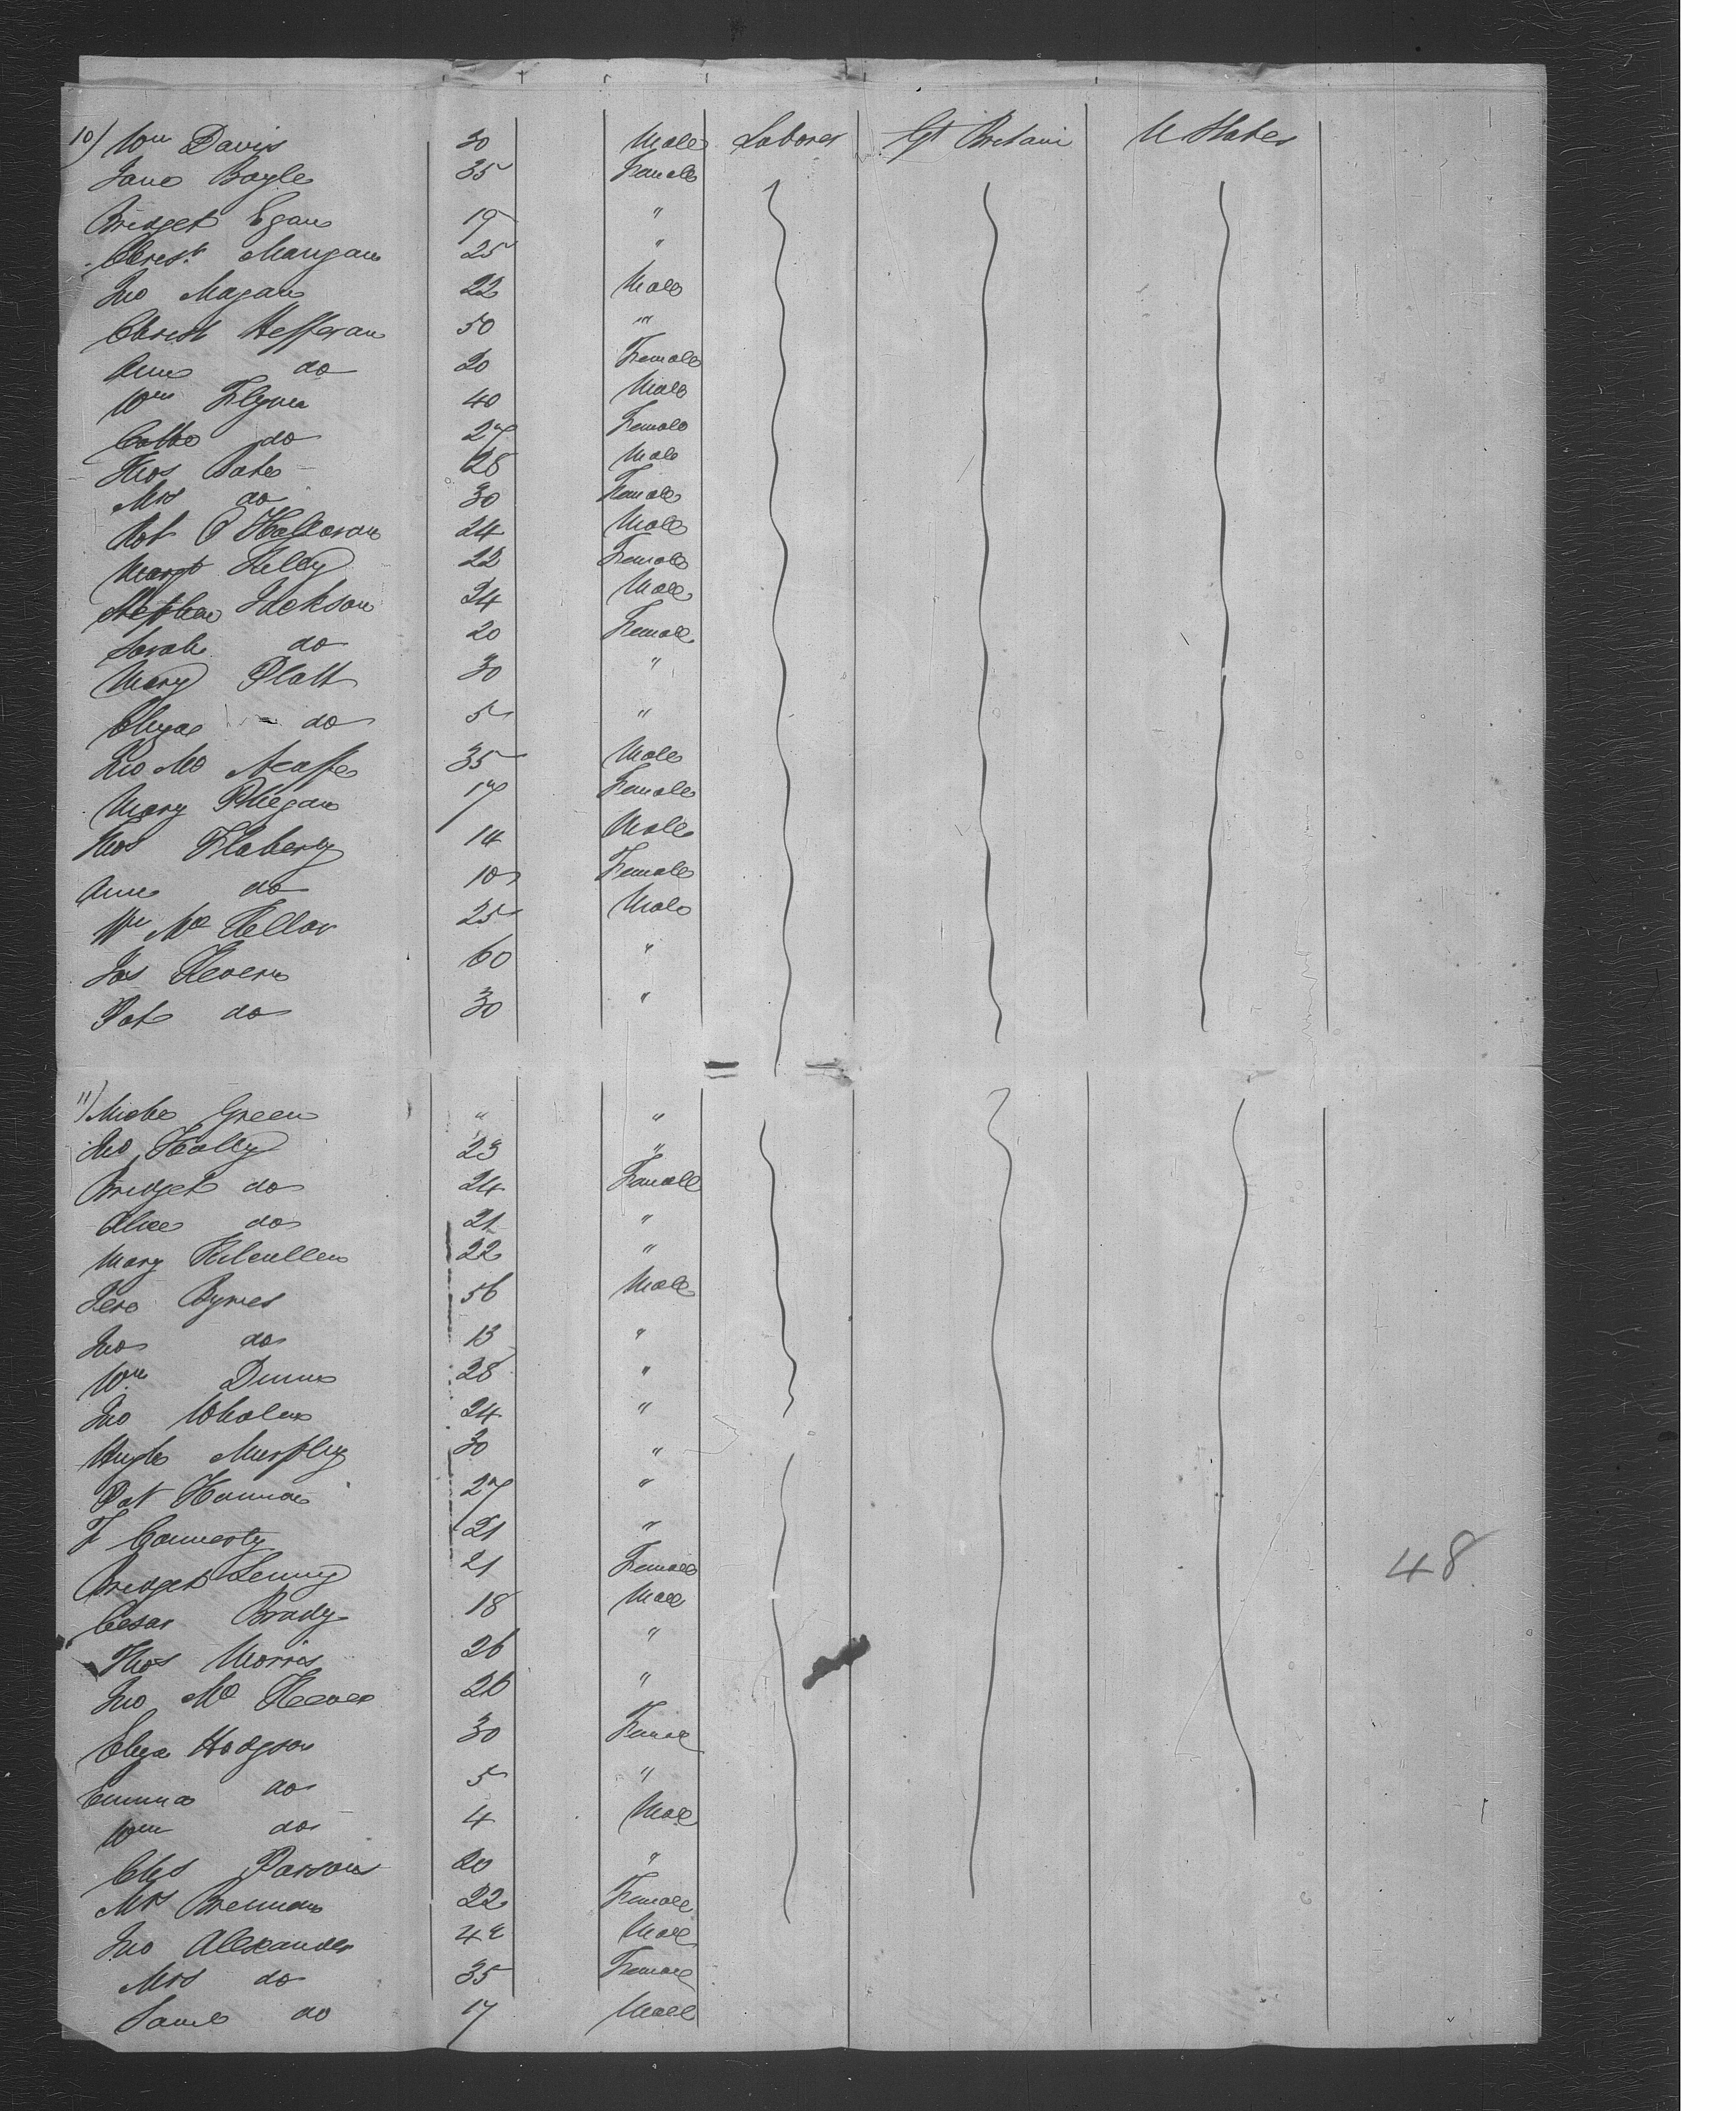 10) Wm Davis 30 Male Laborer Gt Britain U States
Jane Boyle 35 Female
Bridget Egan 19 "
Christ Mangan 25 "
Jno Magan 22 Male
Christ Heffernan 50 "
Anne do 20 Female
Wm Flynn 40 Male
Cathe do 27 Female
Thos Bates 28 Male
Mrs do 30 Female
Rob O'Halloran 24 Male
Margt Kelly 22 Female
Stephen Jackson 24 Male
Sarah do 20 Female
Mary Platt 30 "
Eliza do 5 "
Jno Mc 35 Male
Mary Phegan 17 Female
Thos Flaherty 14 Male
Anne do 10 Female
Wm Mc Kellar 25 Male
Jas Kevern 60 "
Pat do 30 "
11) Miche Green " "
Jno Kelly 23 "
Bridget do 24 Female
Alice do 21 "
Mary Kilcullen 22 "
Byrnes 56 Male
Jno do 13 "
Wm Dunn 28 "
Jno Whalen 24 "
Hugh Murphy 30 "
Pat Hannon 27 "
T Connerty 21 "
Bridget Lenny 21 Female
Cesar Brady 18 Male
Thos Morris 26 "
Jno Mc 26 "
Eliza Hodgson 30 Female
Emma do 5 "
Wm do 4 Male
Chs Parsons 20 "
Mrs Brennan 22 Female
Jno Alexander 42 Male
Mrs do 35 Female
Saml do 17 Male
48